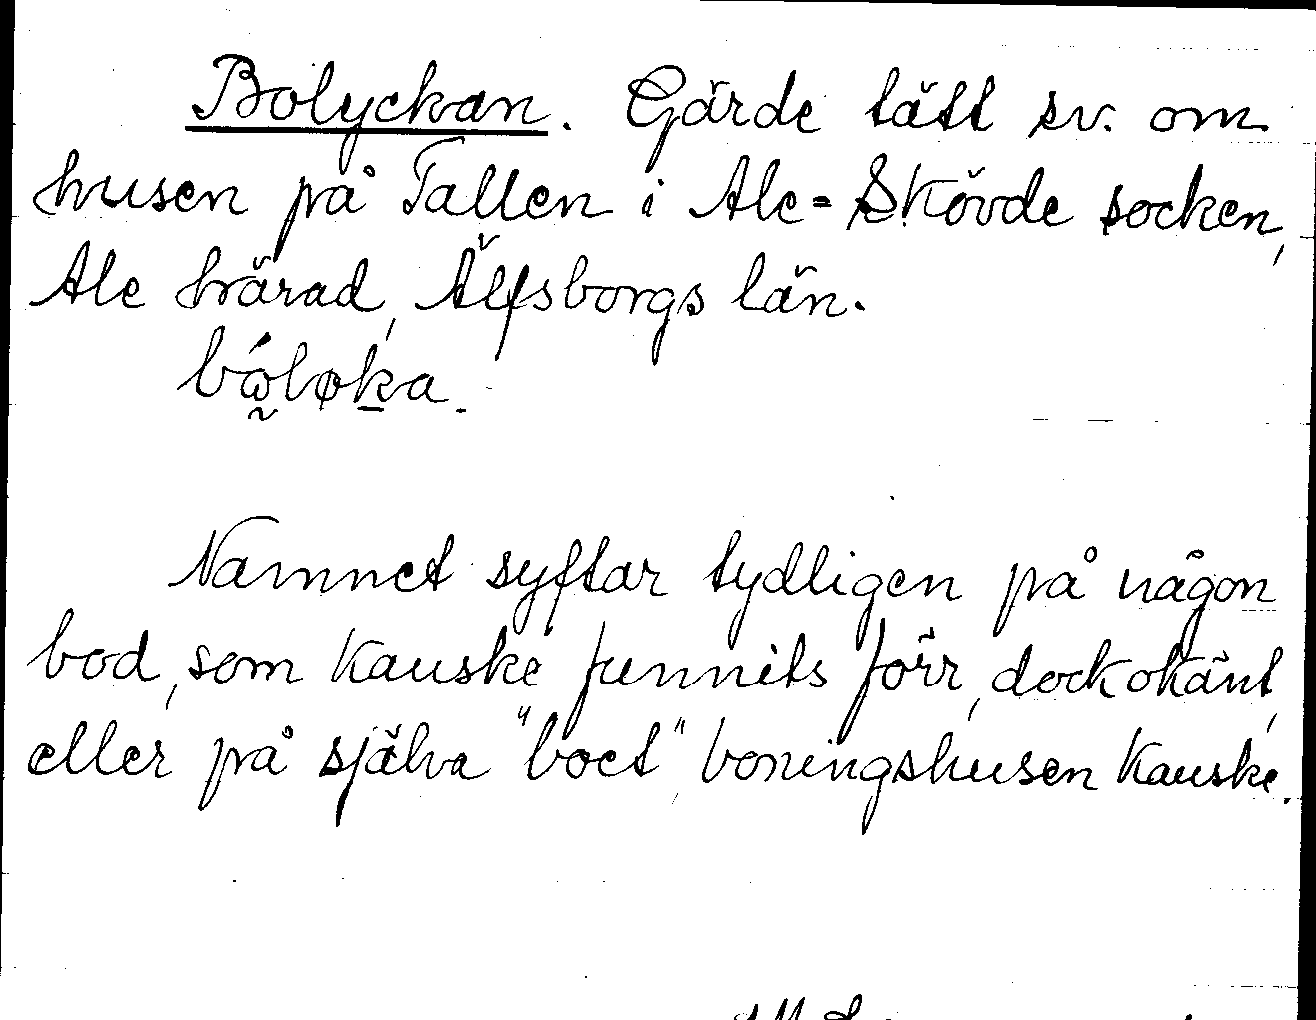 Bolyckan. Gärde tätt sv. om
husen på Tallen i Ale-Skövde socken,
Ale härad, Älfsborgs län.
Namnet syftar tydligen på någon
bod, som kanske funnits förr, dock okänt,
eller på själva "boet", boningshusen kanske.